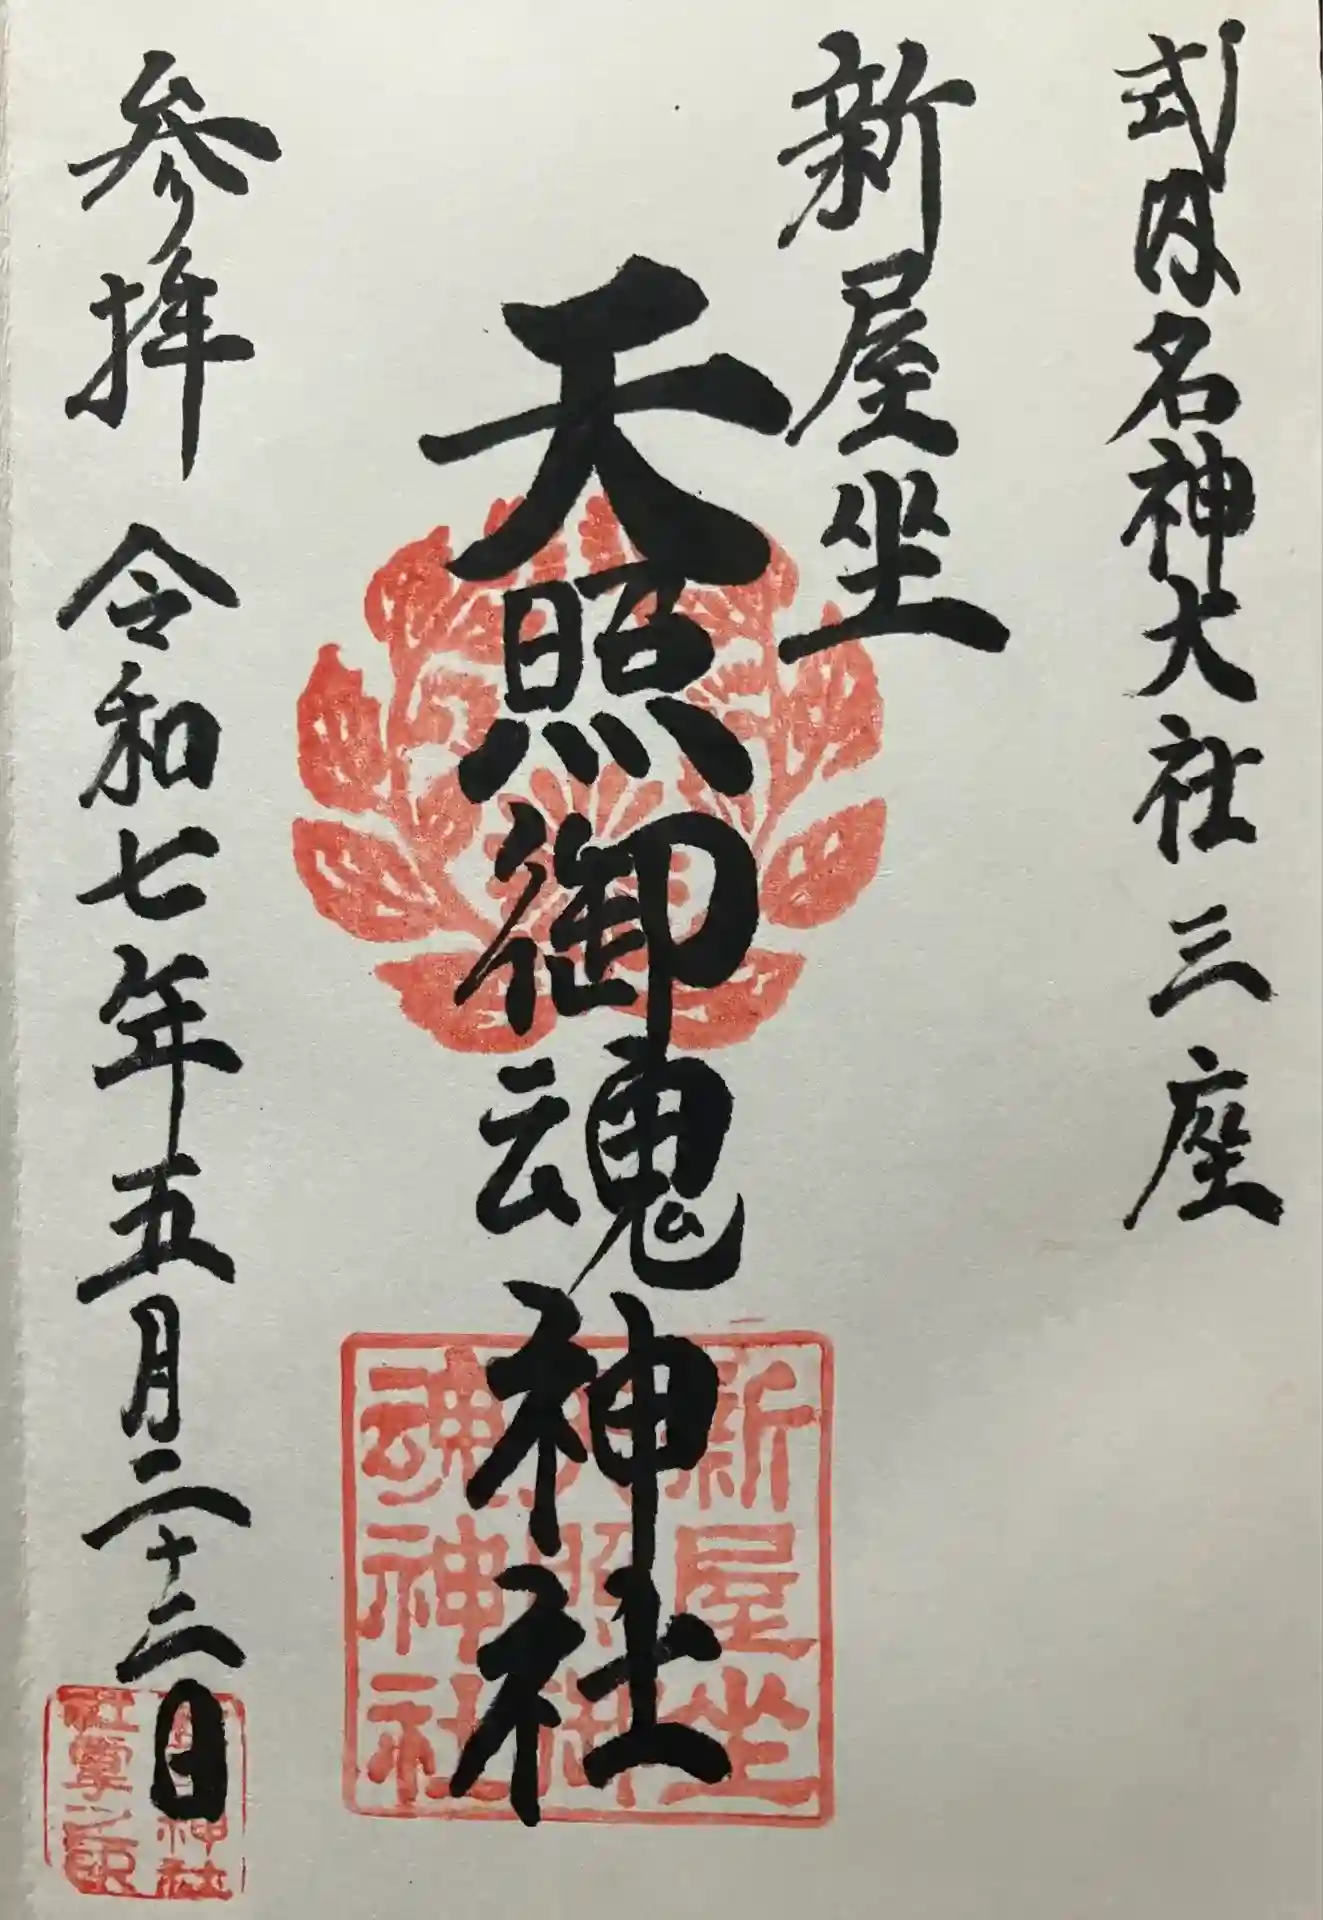 式内名神大社三座
新屋坐
天照御魂神社
参拝 令和七年五月二十二日
新屋坐
天照御
魂神社
神社
社掌之印